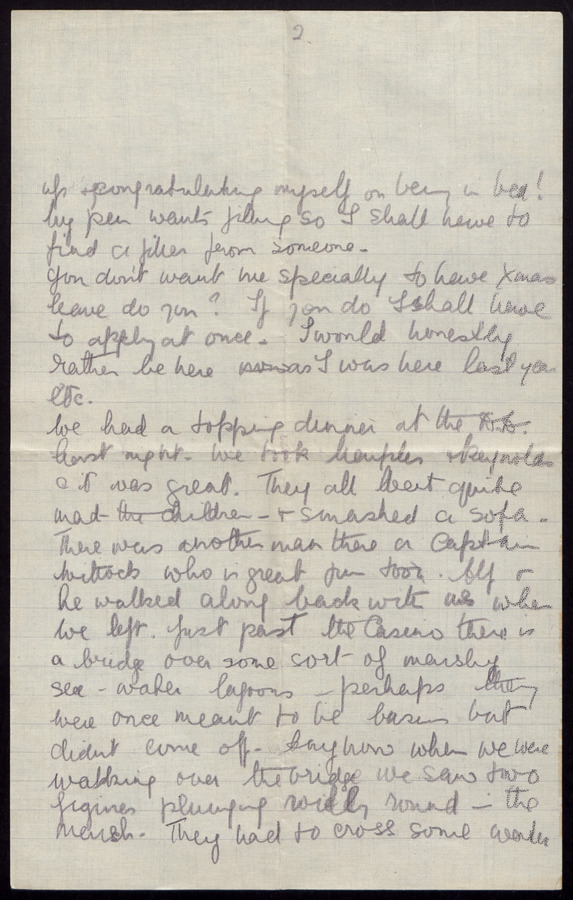 2
up & congratulating myself on being in bed!
My pen wants filling so I shall have to
find a filler from someone -
You don't want me specially to have Xmas
leave do you? If you do I shall have
to apply at once - I would honestly
rather be here as I was here last year
etc.
We had a topping dinner at the
last night - We took & Reynolds
& it was great. They all went quite
mad - the children - & smashed a sofa -
There was another man there a Captain
Wittock who is great fun too. Alf &
he walked along back with us when
we left. Just past the Casino there is
a bridge over some sort of marshy
sea-water lagoons - perhaps they
were once meant to be basins but
didn't come off - Anyhow when we were
walking over the bridge we saw two
figures plunging wildly round in the
marsh. They had to cross some